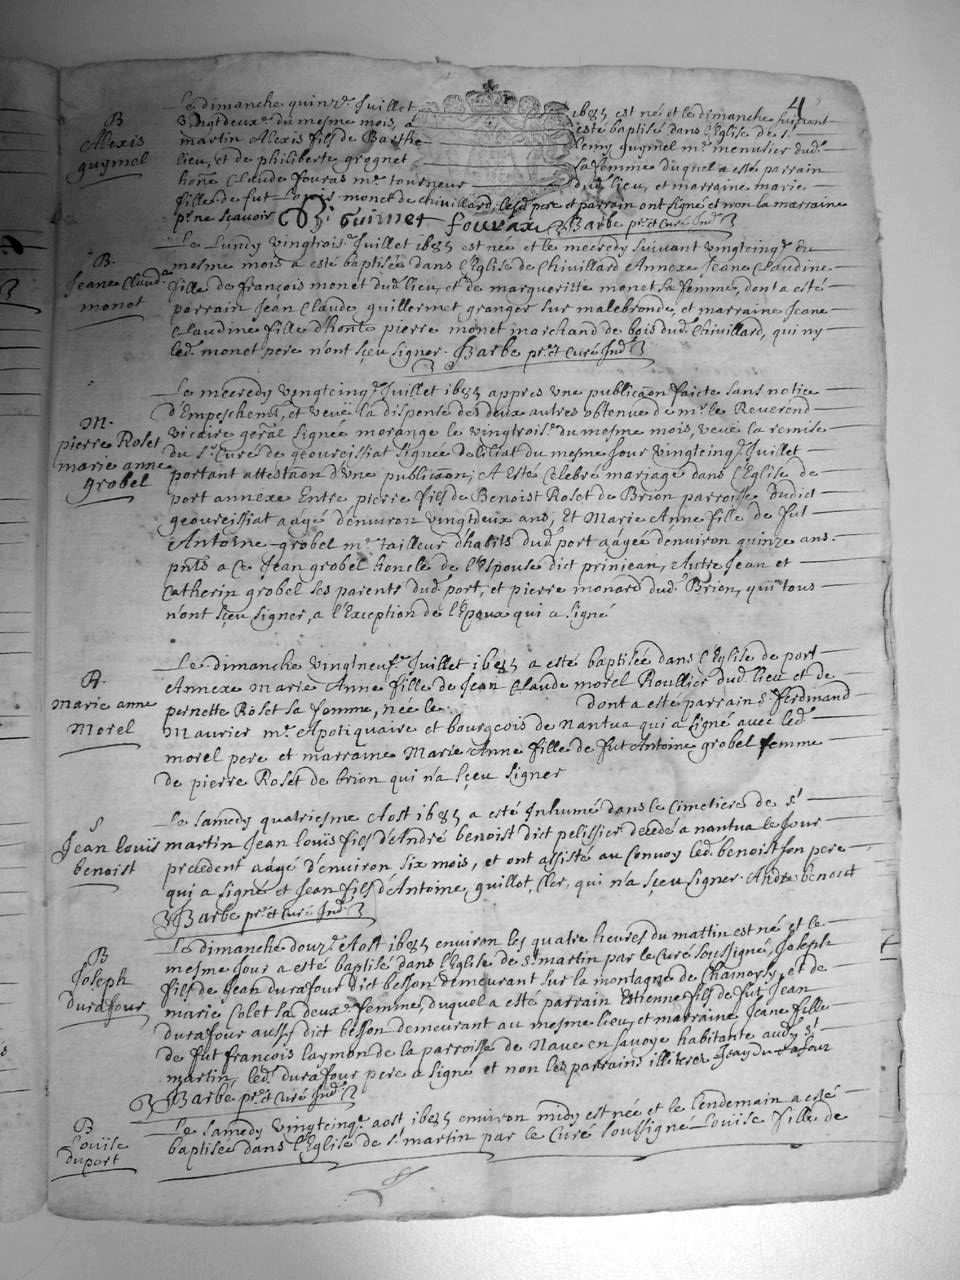 4
B
Alexis
guymel
Le dimanche quinz.e Juillet 1685 est né et le dimanche suivant
Vingtdeux.e du mesme mois, a esté baptisé dans l'Eglise de S.t
martin Alexis fils de Barthelemy guymel m.e menusier dud.t
lieu, et de philiberte grognet sa femme duquel a esté parrain
hon.e Claude fouras m.e tourneur dud.t lieu, et marraine marie
fille de fut Louis monet de chivillard, led.t pere et parrain ont signé et non la marraine
p.r ne scavoir B. Guimet fourax Barbe p.r et Curé Ind.t
B.
Jeane Claud.e
monet
Le Lundy vingtrois.e Juillet 1685 est née et le mecredy suivant vingtcinq.e du
mesme mois a esté baptisée dans l'Eglise de Chivillard Annexe Jeane Claudine
fille de françois monet dud.t lieu, et de margueritte monet sa femme, dont a esté
parrain Jean Claude guillermet granger sur malebronde, et marraine Jeane
Claudine fille d'hon.e pierre monet marchand de bois dud.t Chivillard, qui ny
led.t monet pere n'ont sçeu signer. Barbe p.r et Curé Ind.t
M.
pierre Roset
marie anne
grobel
Le mecredy vingtcinq.e Juillet 1685 appres une publica͠on faicte sans notice
d'Empeschem.t, et veüe la dispense des deux autres obtenue de m.r le Reverend
vicaire gen͠ral signée morange le vingtrois.e du mesme mois, veüe la remise
du S.r Curé de geourcissiat signée deliliat du mesme Jour vingtcinq.e Juillet
portant attesta͠on d'une publica͠on; A Esté Celebré mariage dans l'Eglise de
port annexe Entre pierre fils de Benoist Roset de Brion parroisse dudict
geourcissiat aagé d'environ vingtdeux ans, Et Marie Anne fille de fut
Antoine grobel m.e tailleur d'habits dud.t port aagée d'environ quinze ans.
pn͠ts a Ce Jean grobel honcle de l'Espouse dict prinjean, Autre Jean et
Catherin grobel ses parents dud.t port, et pierre monard dud.t Brion, qui tous
n'ont sçeu signer, a l'Exception de l'Epoux qui a signé
B.
marie anne
Morel
Le dimanche vingtneuf.e Juillet 1685 a esté baptisée dans l'Eglise de port
Annexe Marie Anne fille de Jean Claude morel Roullier dud.t lieu et de
pernette Roset sa femme, née le dont a este parrain S.r Ferdinand
Maurier m.e Apotiquaire et bourgeois de Nantua qui a signé avec led.t
morel pere et marraine Marie Anne fille de fut Antoine grobel femme
de pierre Roset de brion qui n'a sçeu signer
S
Jean louïs
benoist
Le samedy quatriesme Aost 1685 a esté Inhumé dans le Cimetiere de S.t
martin Jean louïs fils d'André benoist dict pelissier decedé a nantua le Jour
precedent aagé d'environ six mois, et ont assisté au Convoy led.t benoist son pere
qui a signé et Jean fils d'Antoine guillot, Cler, qui n'a sçeu signer. Andre benoist
Barbe p.r et Curé Ind.t
B
Joseph
Durafour
Le dimanche douz.e Aost 1685 environ les quatre heures du mattin est né et le
mesme Jour a esté baptisé dans l'Eglise de S.t martin par le Curé soussigné, Joseph
fils de Jean durafour dict besson demeurant sur la montagne de Chamoysy, et de
marie Colet sa deux.e femme, duquel a esté parrain Estienne fils de fut Jean
durafour aussy dict besson demeurant au mesme lieu, et marraine Jeane fille
de fut françois laymon de la parroisse de Nave en savoye habitante aud.t S.t
martin, led.t durafour pere a signé et non les parrains illiterés Jean Durafour
Barbe p.r et Curé Ind.t
B
Louïse
duport
Le samedy vingtcinq.e aost 1685 environ midy est née et le lendemain a esté
baptisée dans l'Eglise de S.t martin par le Curé soussigné Louïse fille de